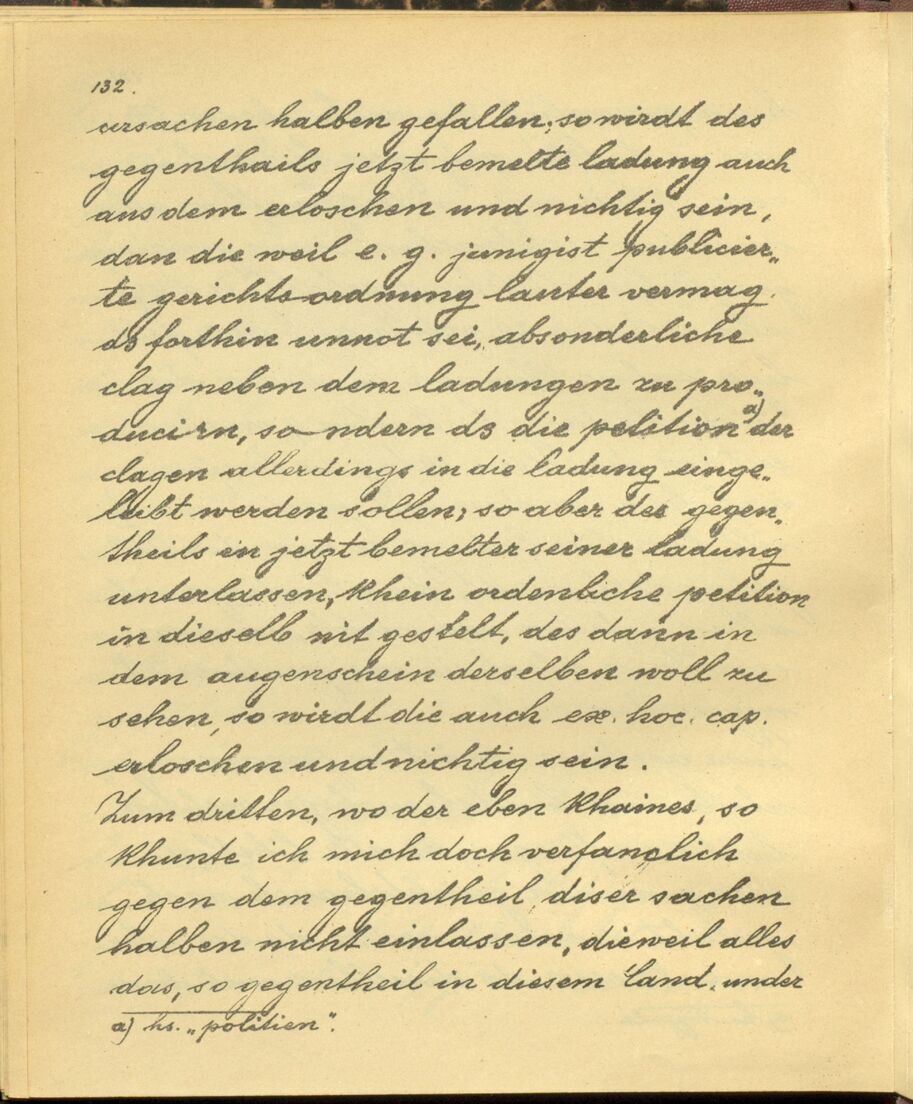 132.
ursachen halben gefallen; so wirdt des
gegenthails jetzt bemelte ladung auch
aus dem erloschen und nichtig sein,
dan die weil e. g. junigist publicier„
te gerichts-ordnung lauter vermag.
ds forthin unnot sei, absonderliche
clag neben dem ladungen zu pro„
ducirn, so ndern ds die petition a) der
clagen allerdings in die ladung einge„
leibt werden sollen; so aber des gegen„
theils in jetzt bemelter seiner ladung
unterlassen, khein ordenliche petition
in dieselb nit gestelt, des dann in
dem augenschein derselben woll zu
sehen, so wirdt die auch ex. hoc. cap.
erloschen und nichtig sein.
Zum dritten, wo der eben khaines, so
khunte ich mich doch verfanclich
gegen dem gegentheil, diser sachen
halben nicht einlassen, dieweil alles
das, so gegentheil in diesem land, under
a) hs. „politien".